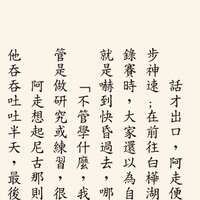 話才出口，阿走便
步神速；在前往白樺湖
錄賽時，大家還以為自
就是嚇到快昏過去，哪
「不管學什麼，我
管是做研究或練習，很
阿走想起尼古那則
他吞吞吐吐半天，最後